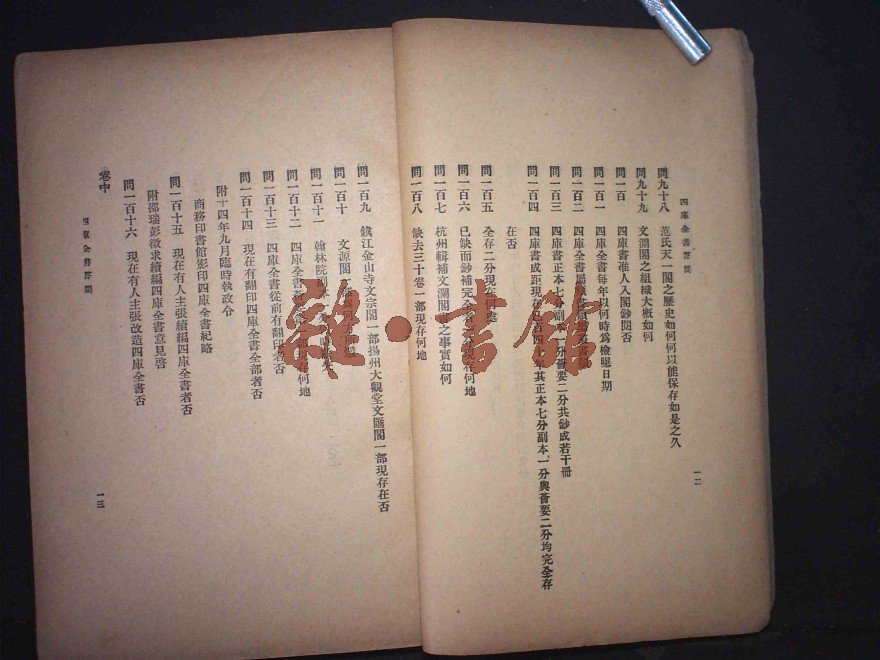 四庫全書答問
一二
問九十八 范氏天一閣之歷史如何何以能保存如是之久
問九十九 文淵閣之組織大概如何
問一百 四庫書准人入閣鈔閱否
問一百一 四庫全書每年以何時爲檢曝日期
問一百二 四庫全書屬
問一百三 四庫書正本七分副本一分薈要二分共鈔成若干冊
問一百四 四庫書成距現在已百四十年其正本七分副本一分與薈要二分均完全存
在否
問一百五 全存二分現在何處
問一百六 已缺而鈔補完全者 現在何地
問一百七 杭州輯補文瀾閣書之事實如何
問一百八 缺去三十卷一部現存何地
問一百九 鎮江金山寺文宗閣一部揚州大觀堂文匯閣一部現存在否
問一百十 文源閣一部
問一百十一 翰林院副本一
問一百十二 四庫全書薈要二部 在何地
問一百十三 四庫全書從前有翻印者否
問一百十四 現在有翻印四庫全書全部者否
附十四年九月臨時執政令
商務印書館影印四庫全書紀略
問一百十五 現在有人主張續編四庫全書者否
附邵瑞彭徵求續編四庫全書意見啓
問一百十六 現在有人主張改造四庫全書否
卷中
四庫全書答問
一三
雜·書館